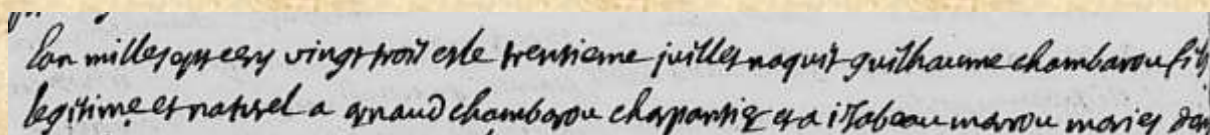 lan mille sept cens vingt trois et le trensieme juillet naquit guilhaume chambarou fils
legitime et naturel a arnaud chambarou charpantier et a isabeau marrou mariés dan